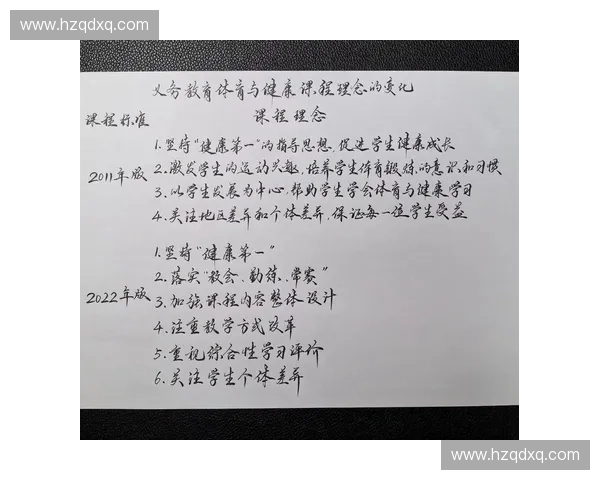 www.hzqdxq.com
义务教育体育与健康课程理念的变化
课程标准
课程理念
2011年版
1.坚持"健康第一"的指导思想,促进学生健康成长
2.激发学生的运动兴趣,培养学生体育锻炼的意识和习惯
3.以学生发展为中心,帮助学生学会体育与健康学习
4.关注地区差异和个体差异,保证每一位学生受益
2022年版
1.坚持"健康第一"
2.落实"教会、勤练、常赛"
3.加强课程内容整体设计
4.注重教学方式改革
5.重视综合性学习评价
6.关注学生个体差异
www.hzqdxq.com